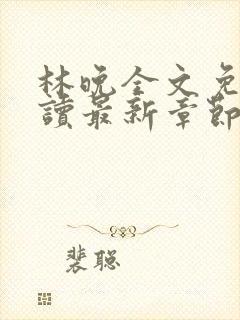 林晚全文免
讀最新章節
裴聪